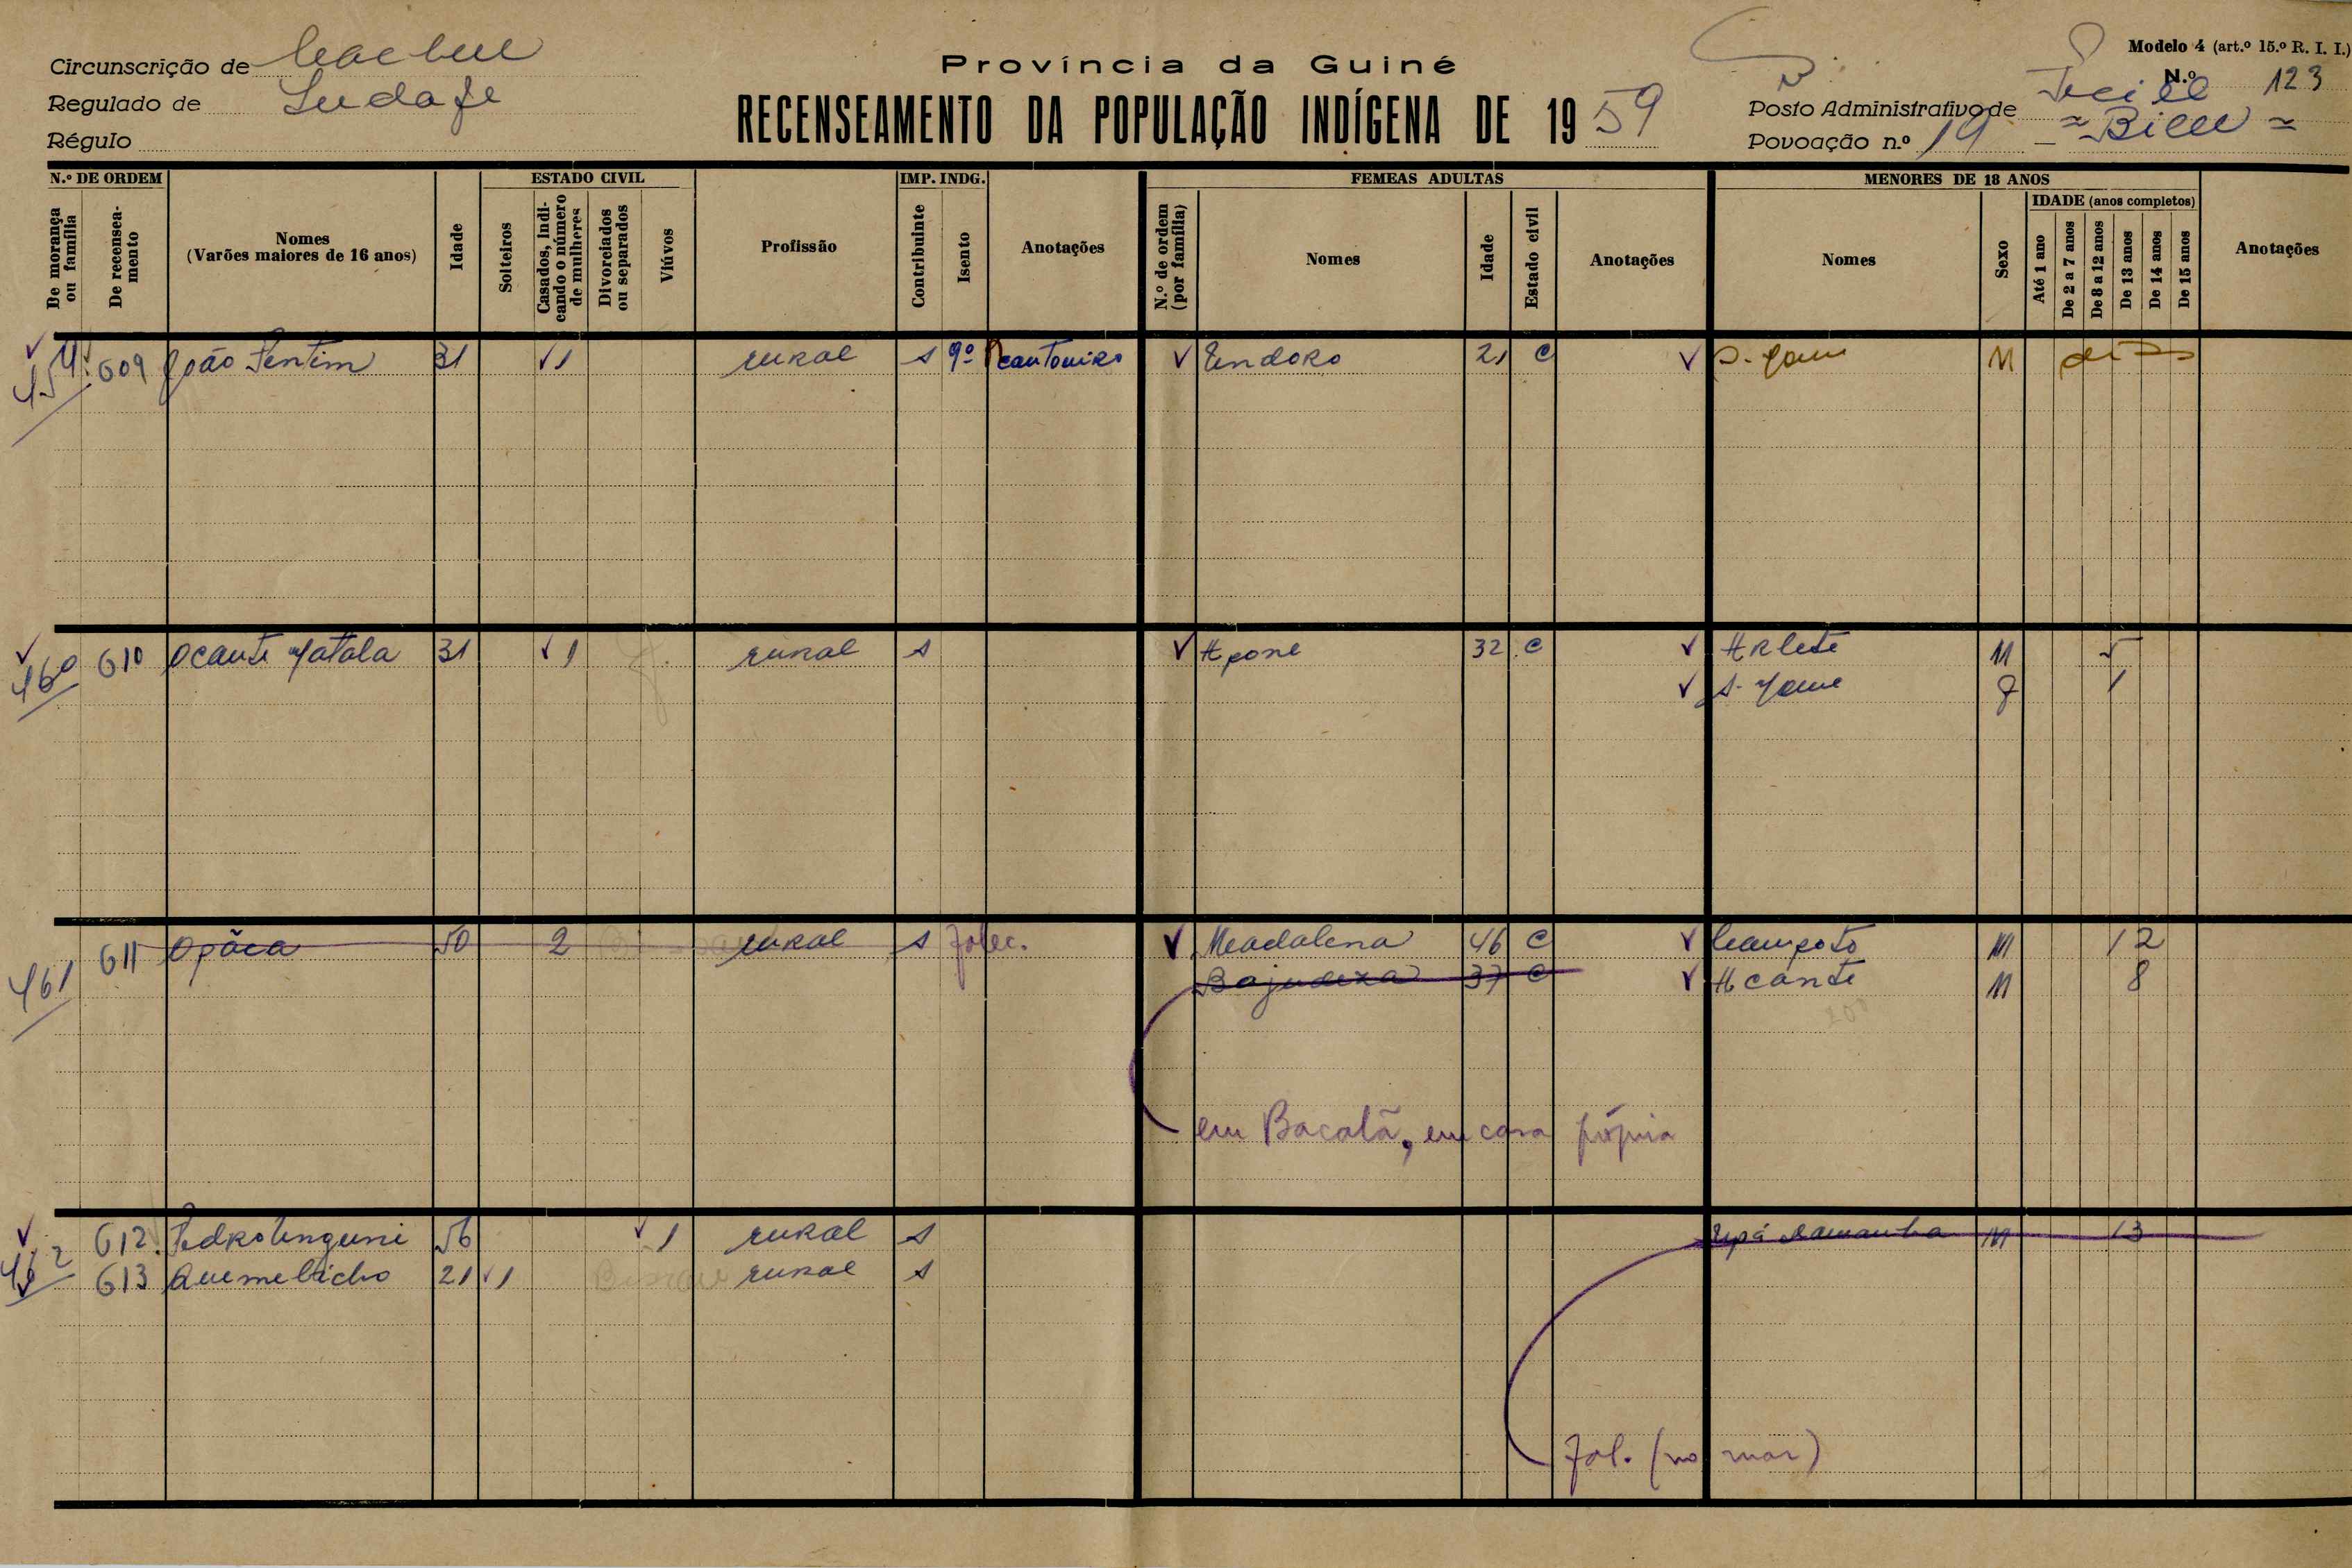 Circunscrição de Cacheu
Regulado de
Régulo
Província da Guiné
RECENSEAMENTO DA POPULAÇÃO INDÍGENA DE 1959
Modelo 4 (art.º 15.º R. I. I.)
N.º 123
Posto Administrativo de
Povoação n.º 19
N.º DE ORDEM
De morança ou família
De recenseamento
Nomes
(Varões maiores de 16 anos)
Idade
ESTADO CIVIL
Solteiros
Casados, indicando o número de mulheres
Divorciados ou separados
Viúvos
Profissão
IMP. INDG.
Contribuinte
Isento
Anotações
FEMEAS ADULTAS
N.º de ordem (por família)
Nomes
Idade
Estado civil
Anotações
MENORES DE 18 ANOS
Nomes
Sexo
IDADE (anos completos)
Até 1 ano
De 2 a 7 anos
De 8 a 12 anos
De 13 anos
De 14 anos
De 15 anos
Anotações
609 João Pentim 31 1 rural s 9º cantoneiro Endoro 21 C M
460 610 Ocante 31 1 rural s 32 C Arlete M
461 611 Opâca 50 2 rural s falec. Madalena 46 C Campoto M 12
37 C Acante M 8
em Bacatã, em casa própria
462 612 56 1 rural s M 13
613 21 1 rural s
fal. (no mar)